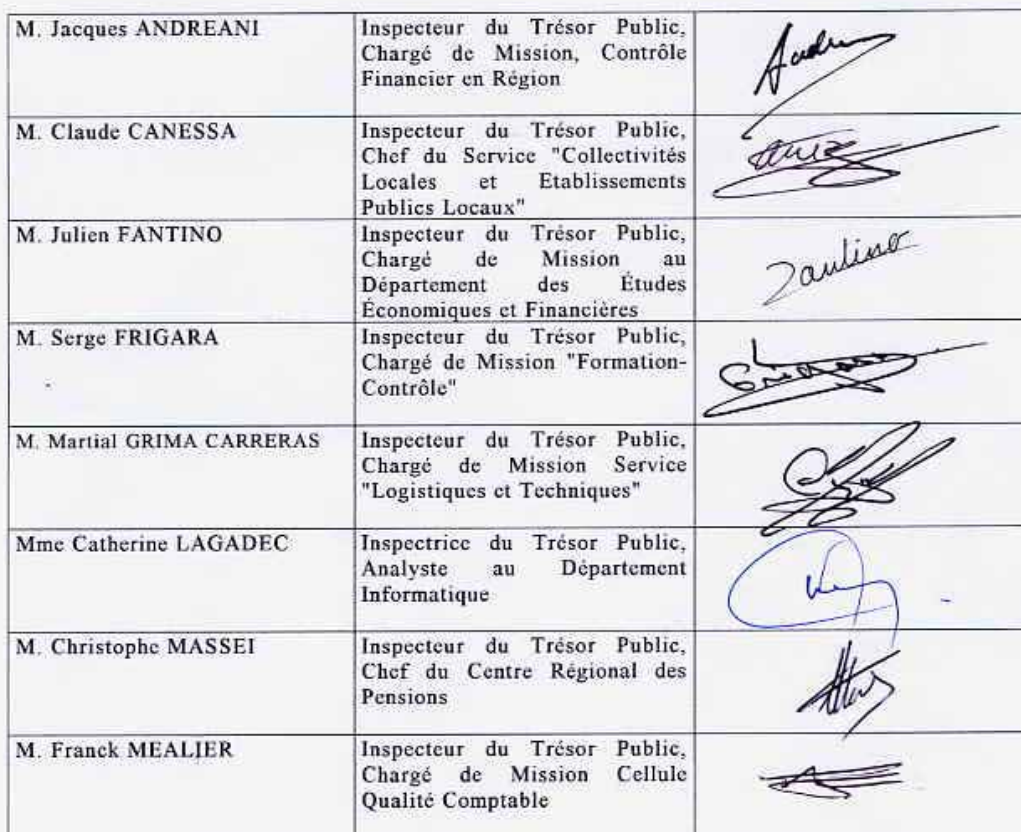 M. Jacques ANDREANI
Inspecteur du Trésor Public,
Chargé de Mission, Contrôle
Financier en Région
M. Claude CANESSA
Inspecteur du Trésor Public,
Chef du Service "Collectivités
Locales et Etablissements
Publics Locaux"
M. Julien FANTINO
Inspecteur du Trésor Public,
Chargé de Mission au
Département des Études
Économiques et Financières
M. Serge FRIGARA
Inspecteur du Trésor Public,
Chargé de Mission "Formation-
Contrôle"
M. Martial GRIMA CARRERAS
Inspecteur du Trésor Public,
Chargé de Mission Service
"Logistiques et Techniques"
Mme Catherine LAGADEC
Inspectrice du Trésor Public,
Analyste au Département
Informatique
M. Christophe MASSEI
Inspecteur du Trésor Public,
Chef du Centre Régional des
Pensions
M. Franck MEALJER
Inspecteur du Trésor Public,
Chargé de Mission Cellule
Qualité Comptable